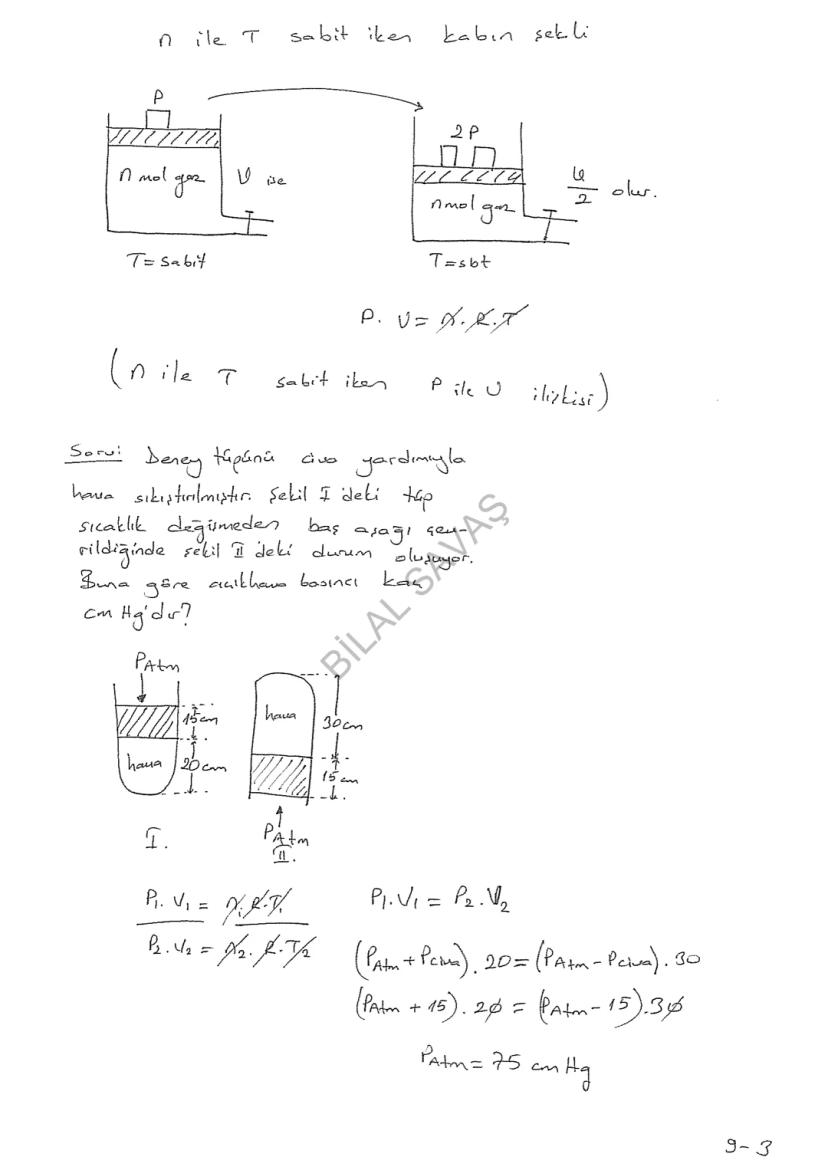 n ile T sabit iken kabın şekli
P
n mol gaz
V ise
T = sabit
2P
n mol gaz
V/2 olur.
T = sbt
P. V = n.R.T
(n ile T sabit iken P ile V ilişkisi)
Soru: Deney tüpünü civa yardımıyla
hava sıkıştırılmıştır. Şekil I 'deki tüp
sıcaklık değişmeden baş aşağı çev-
rildiğinde şekil II 'deki durum oluşuyor.
Buna göre açıkhava basıncı kaç
cm Hg'dır?
PAtm
15 cm
hava
20 cm
I.
hava
30 cm
15 cm
PAtm
II.
P1. V1 = n1.R.T1
P2. V2 = n2.R.T2
P1.V1 = P2.V2
(PAtm + Pciva). 20 = (PAtm - Pciva). 30
(PAtm + 15). 20 = (PAtm - 15).30
PAtm = 75 cm Hg
BİLAL SAVAŞ
9-3